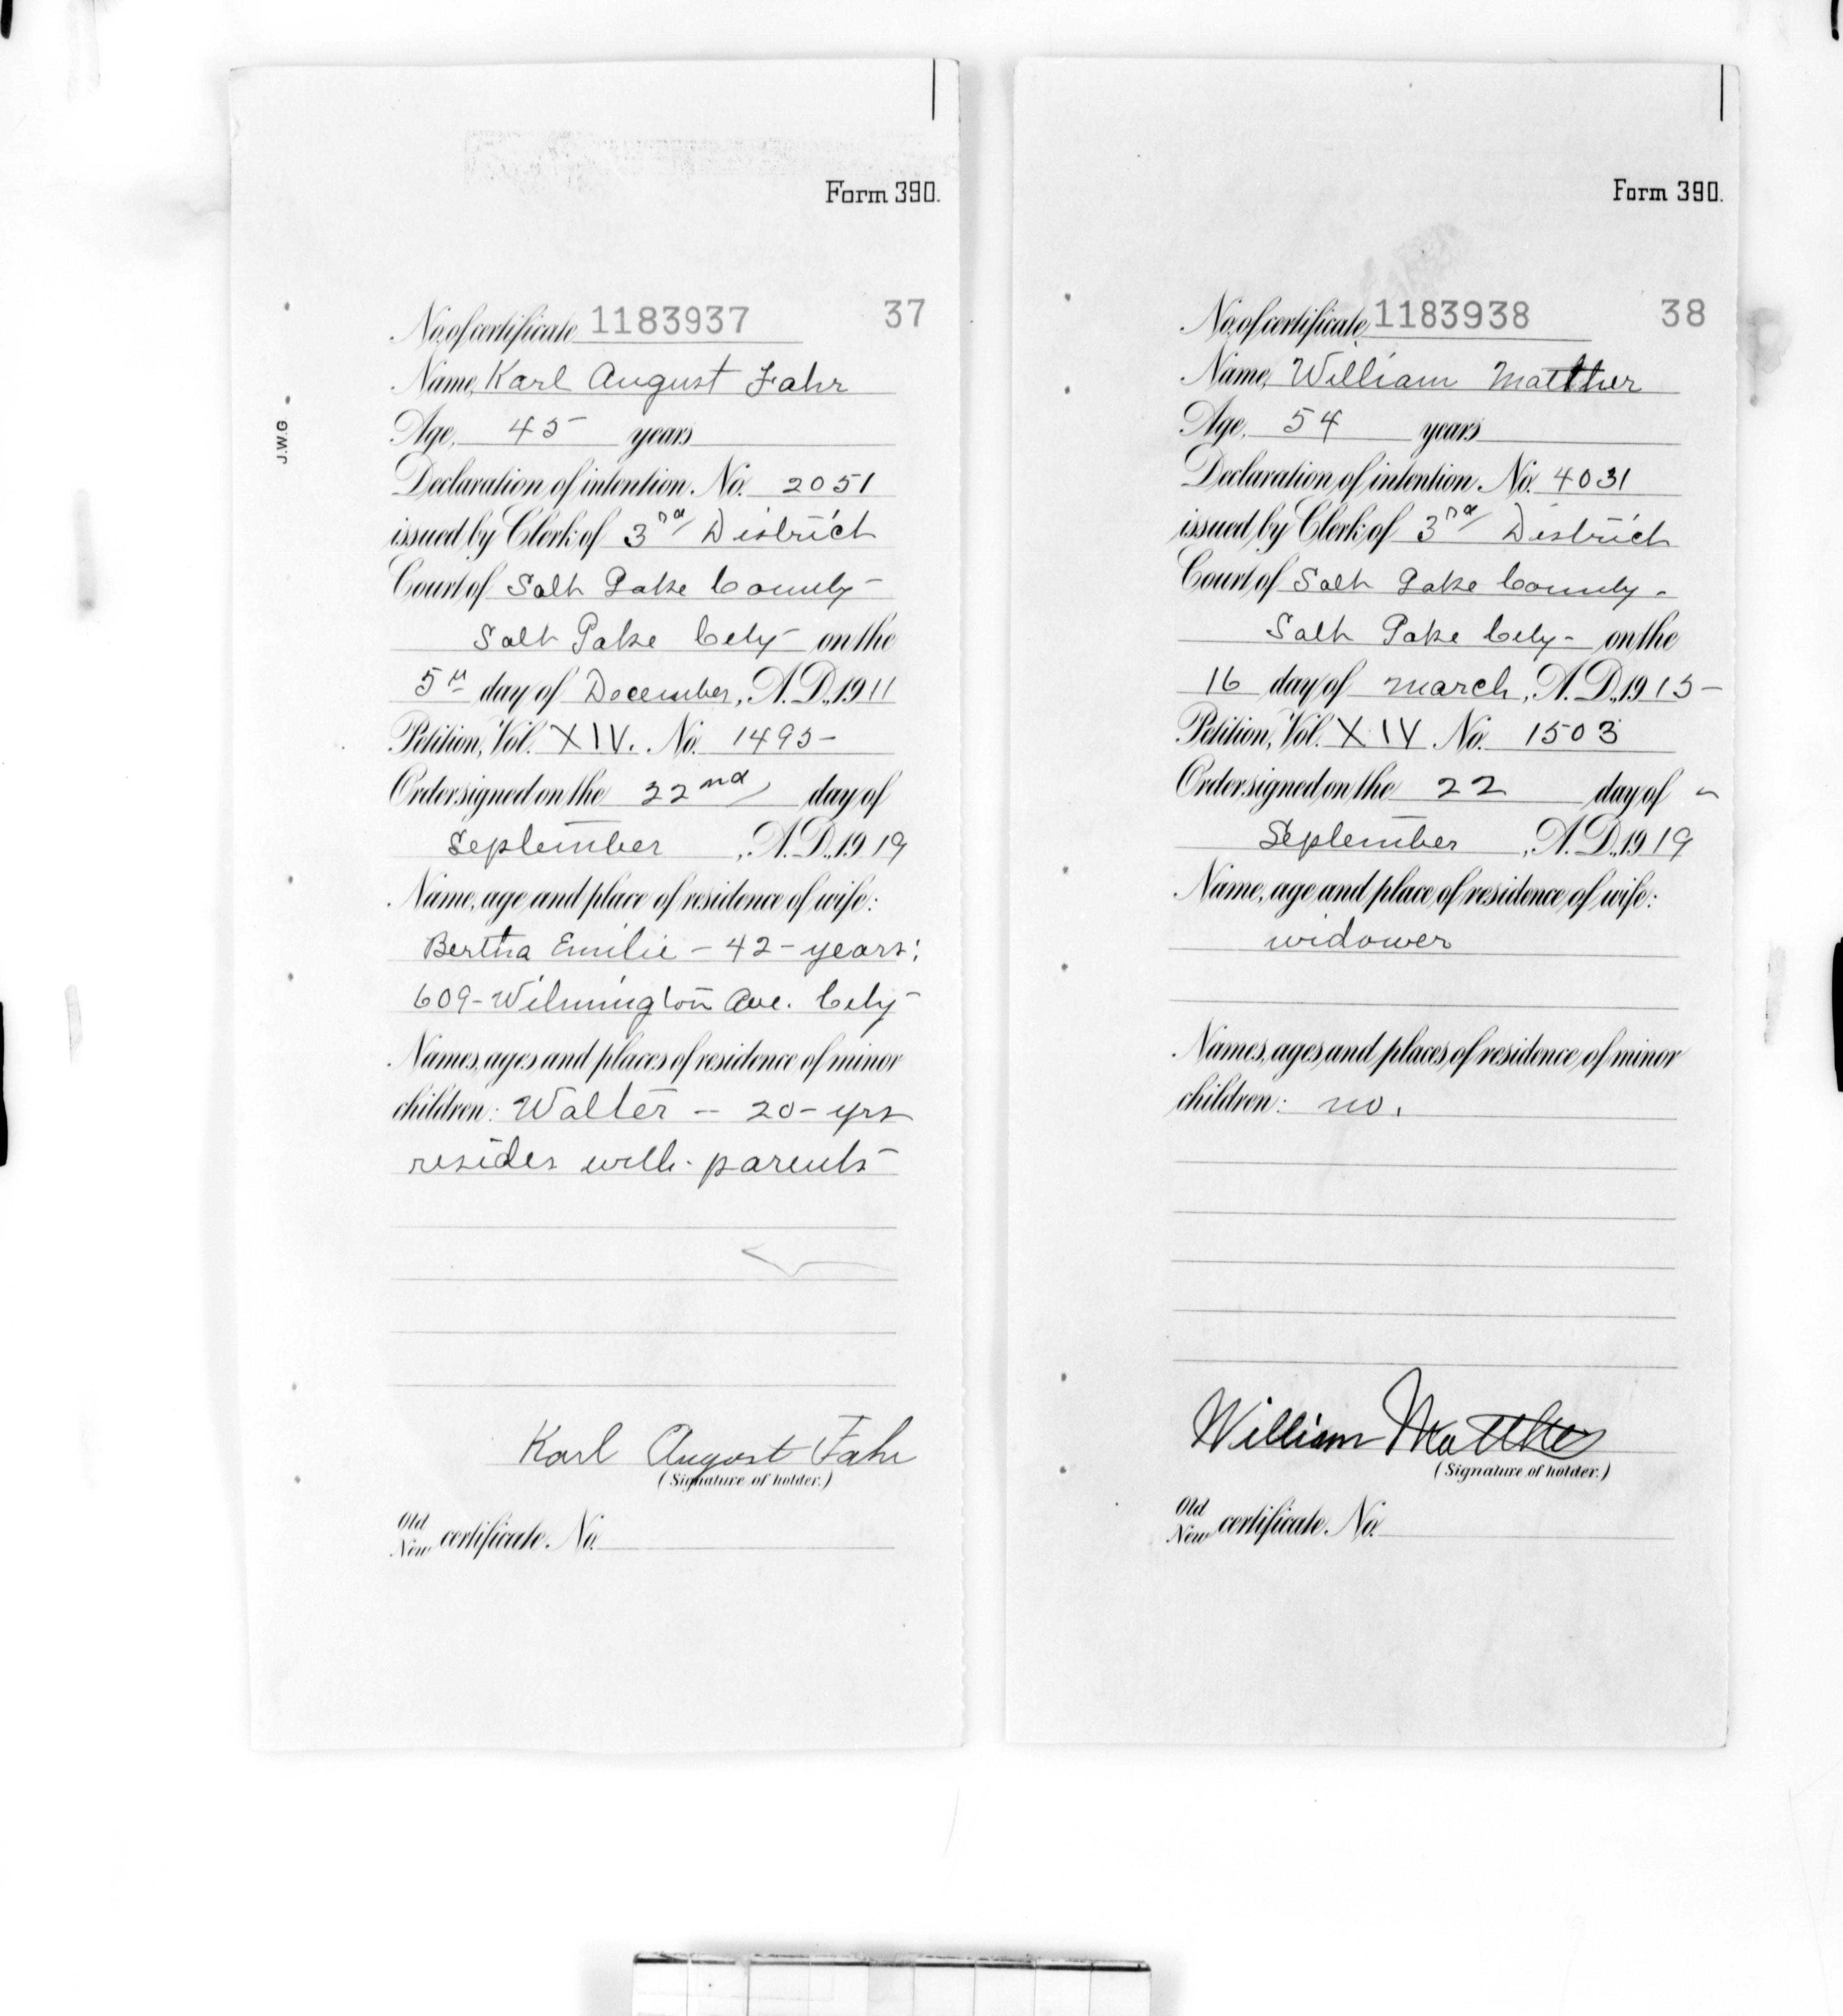 Form 390.
No. of certificate, 1183937 37
Name, Karl August Fahr
Age, 45 years
Declaration of intention, No. 2051
issued by Clerk of 3rd District
Court of Salt Lake County
Salt Lake City on the
5th day of December, A.D., 1911
Petition, Vol. XIV. No. 1495
Order signed on the 22nd day of
September, A.D., 1919
Name, age and place of residence of wife:
Bertha Emilie - 42 - years;
609 - Wilmington Ave. City
Names, ages and places of residence of minor
children: Walter - 20 - yrs
resides with parents
Karl August Fahr
(Signature of holder.)
Old
New certificate, No.
J.W.G.
Form 390.
No. of certificate, 1183938 38
Name, William Matther
Age, 54 years
Declaration of intention, No. 4031
issued by Clerk of 3rd District
Court of Salt Lake County -
Salt Lake City - on the
16 day of March, A.D., 1915
Petition, Vol. XIV No. 1503
Order signed on the 22 day of
September, A.D., 1919
Name, age and place of residence of wife:
widower
Names, ages and places of residence of minor
children: no.
William Matthes
(Signature of holder.)
Old
New certificate, No.